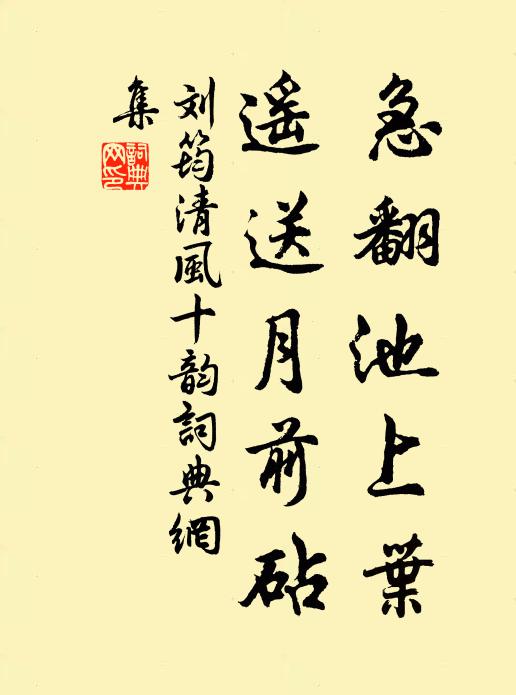 急翻池上葉
遥送月前砧
刘筠清風十韵詞典網
集
詞典網印